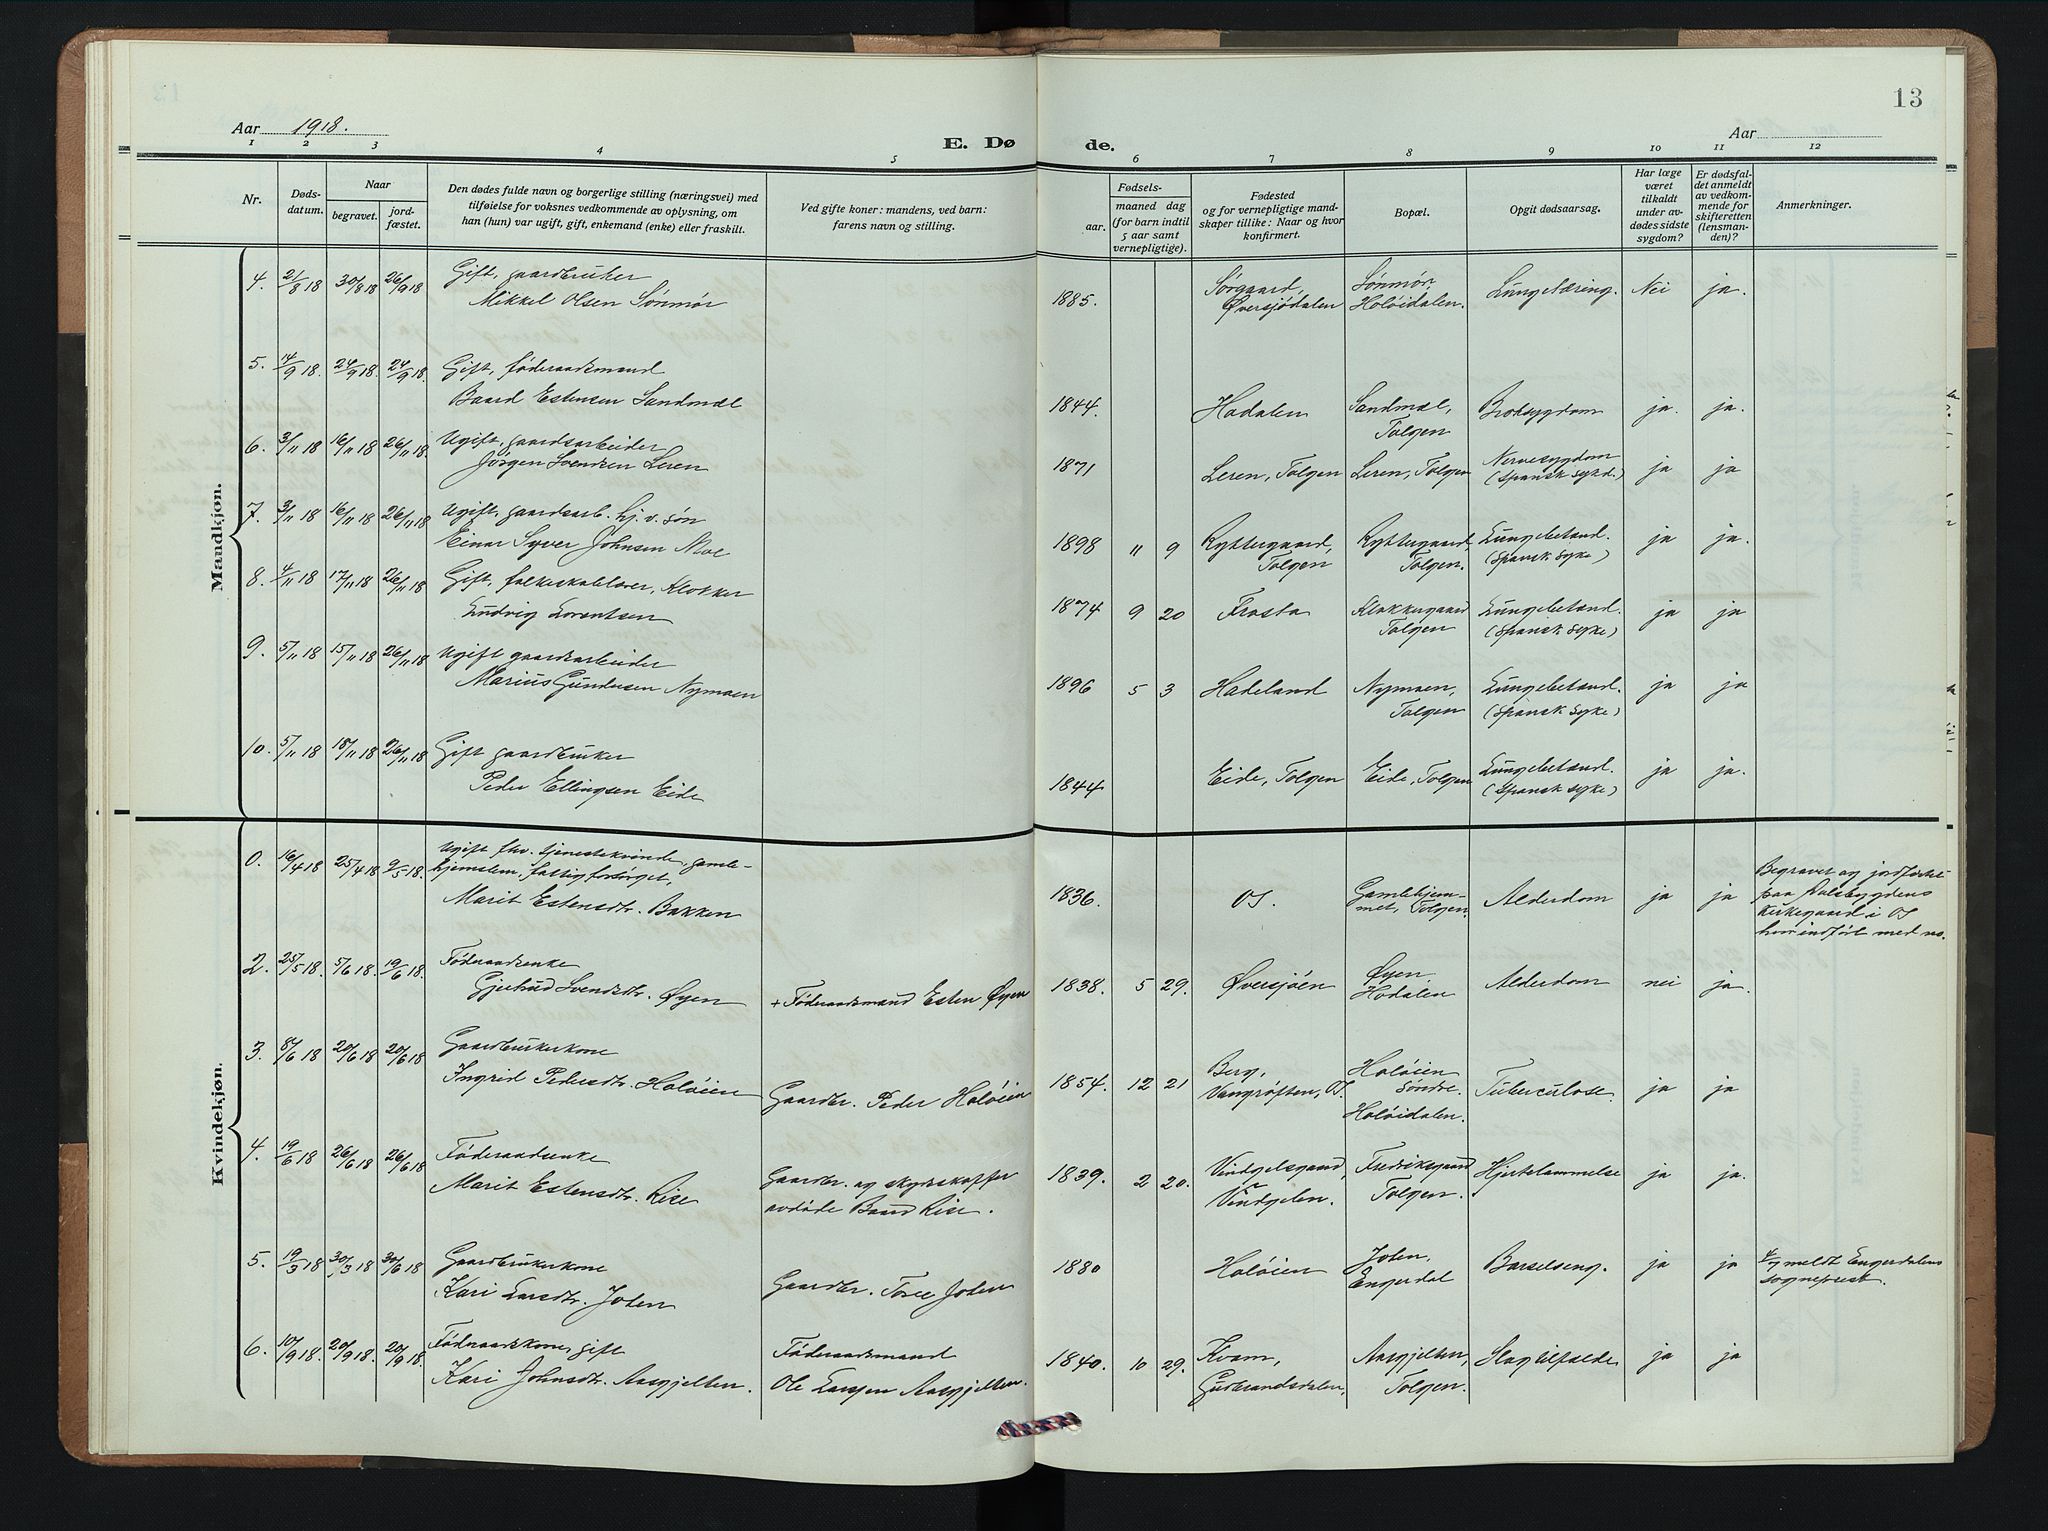 13
Aar 1918.
E. Dø
de.
Aar
1 2 3 4 5 6 7 8 9 10 11 12
Nr.
Døds-
datum.
Naar
begravet.
jord-
fæstet.
Den dødes fulde navn og borgerlige stilling (næringsvei) med
tilføielse for voksnes vedkommende av oplysning, om
han (hun) var ugift, gift, enkemand (enke) eller fraskilt.
Ved gifte koner: mandens, ved barn:
farens navn og stilling.
Fødsels-
aar.
maaned dag
(for barn indtil
5 aar samt
vernepligtige).
Fødested
og for vernepligtige mand-
skaper tillike: Naar og hvor
konfirmert.
Bopæl.
Opgit dødsaarsag.
Har læge
været
tilkaldt
under av-
dødes sidste
sygdom?
Er dødsfal-
det anmeldt
av vedkom-
mende for
skifteretten
(lensman-
den)?
Anmerkninger.
Mandkjøn.
4. 21/8 18 30/8 18 26/9 18 Gift, gaardbruker
Mikkel Olsen Sønmør
1885. Sørgaard,
Øversjødalen
Sønmør,
Holøidalen.
Lungetæring. Nei ja.
5. 14/9 18. 24/9 18. 24/9 18. Gift, føderaadsmand
Baard Estensen Sandmæl
1844. Hodalen Sandmæl,
Tolgen
Broksygdom ja. ja.
6. 3/11 18 16/11 18 26/11 18. Ugift, gaardsarbeider
Jørgen Svendsen Leren
1871 Leren, Tolgen Leren, Tolgen Nervesygdom
(Spansk sykd.)
ja ja
7. 3/11 18 16/11 18 26/11 18 Ugift, gaardsarb. hj. v. søn
Einar Syver Johnsen Moe
1898 11 9 Ryttergaard,
Tolgen
Ryttergaard,
Tolgen.
Lungebetænd.
(Spansk syke)
ja ja.
8. 4/11 18 17/11 18 26/11 18 Gift, folkeskolelærer, klokker
Ludvig Lorentsen
1874 9 20 Frosta Klokkergaard
Tolgen
Lungebetænd.
(Spansk syke)
ja ja
9. 5/11 18 15/11 18 26/11 18 Ugift gaardsarbeider
Marius Gundersen Nymoen
1896 5 3 Hadeland Nymoen,
Tolgen
Lungebetænd.
(Spansk syke)
ja ja
10. 5/11 18 18/11 18 26/11 18 Gift gaardbruker
Peder Ellingsen Eide
1844 Eide, Tolgen Eide, Tolgen Lungebetænd.
(Spansk syke)
ja ja.
Kvindekjøn.
0. 16/4 18 25/4 18 9/5 18. Ugift fhv. tjenestekvinde, gamle-
hjemslem, fattigforsørget,
Marit Estensdtr. Bakken
1836. Os. Gamlehjem-
met, Tolgen
Alderdom ja ja
Begravet og jordfæstet
paa Dalsbygdens
kirkegaard i Os
hvor indført med no.
2. 25/5 18. 5/6 18. 19/6 18. Føderaadsenke
Gjertrud Svendsdtr. Øyen + Føderaadsmand Esten Øyen
1838. 5 29. Øversjøen Øyen
Hodalen
Alderdom nei ja.
3. 8/6 18 20/6 18 20/6 18 Gaardbrukerkone
Ingrid Pedersdtr. Holøien Gaardbr. Peder Holøien
1854. 12 21 Berg,
Vangrøften, Os.
Holøien
søndre.
Holøidalen.
Tuberculose. ja ja
4. 19/6 18 26/6 18 26/6 18 Føderaadsenke
Marit Estensdtr. Rise
Gaardbr. og skydsskaffer
avdøde Baard Rise.
1839. 2 20. Vingelsgaard,
Vingelen.
Fredriksgaard
Tolgen.
Hjertelammelse ja ja.
5. 19/3 18 30/3 18 30/6 18 Gaardbrukerkone
Kari Larsdtr. Joten Gaardbr. Tore Joten
1880 Holøien Joten,
Engerdal
Barselseng. ja ja
4/7 meldt Engerdalens
sogneprest.
6. 10/9 18. 20/9 18. 20/9 18. Føderaadskone, gift
Kari Johnsdtr. Aasgjelten.
Føderaadsmand
Ole Larssen Aasgjelten.
1840. 10 29. Kvam,
Gudbrandsdalen,
Aasgjelten,
Tolgen.
Slagtilfælde ja ja